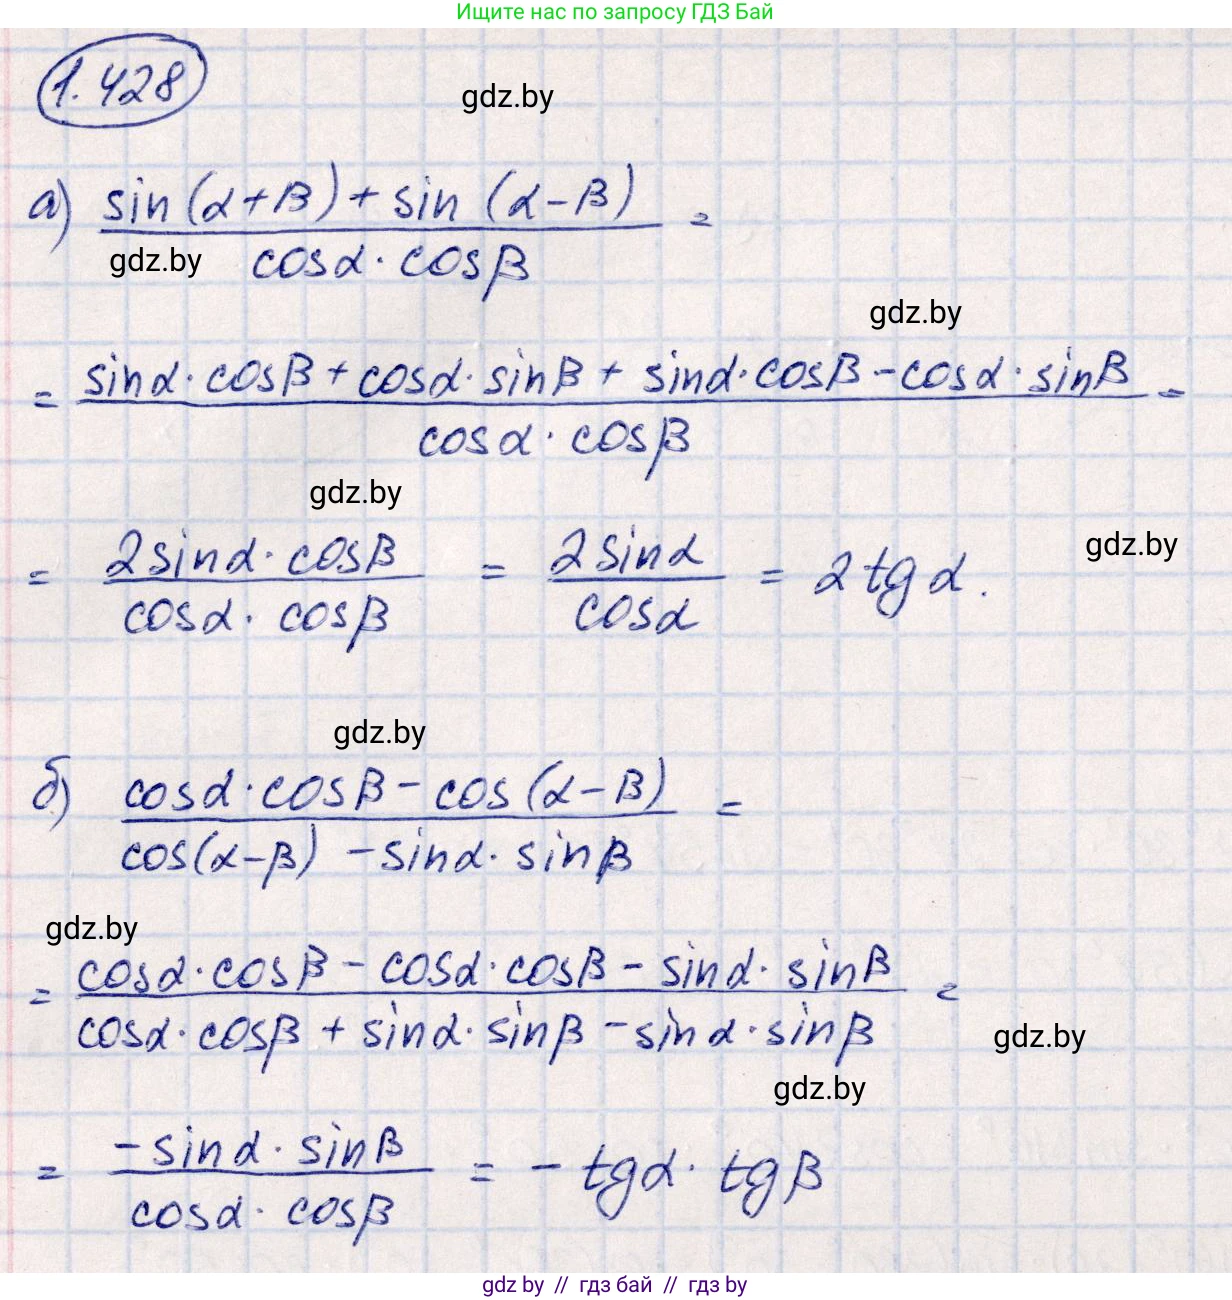 Ищите нас по запросу ГДЗ Бай
1.428
gdz.by
а) (sin(α+β)+sin(α-β))/(cosα·cosβ) =
gdz.by
gdz.by
= (sinα·cosβ+cosα·sinβ+sinα·cosβ-cosα·sinβ)/(cosα·cosβ) =
gdz.by
gdz.by
= (2sinα·cosβ)/(cosα·cosβ) = (2sinα)/(cosα) = 2tgα.
gdz.by
б) (cosα·cosβ-cos(α-β))/(cos(α-β)-sinα·sinβ) =
gdz.by
= (cosα·cosβ-cosα·cosβ-sinα·sinβ)/(cosα·cosβ+sinα·sinβ-sinα·sinβ) =
gdz.by
gdz.by
= (-sinα·sinβ)/(cosα·cosβ) = -tgα·tgβ
gdz by // гдз бай // gdz by